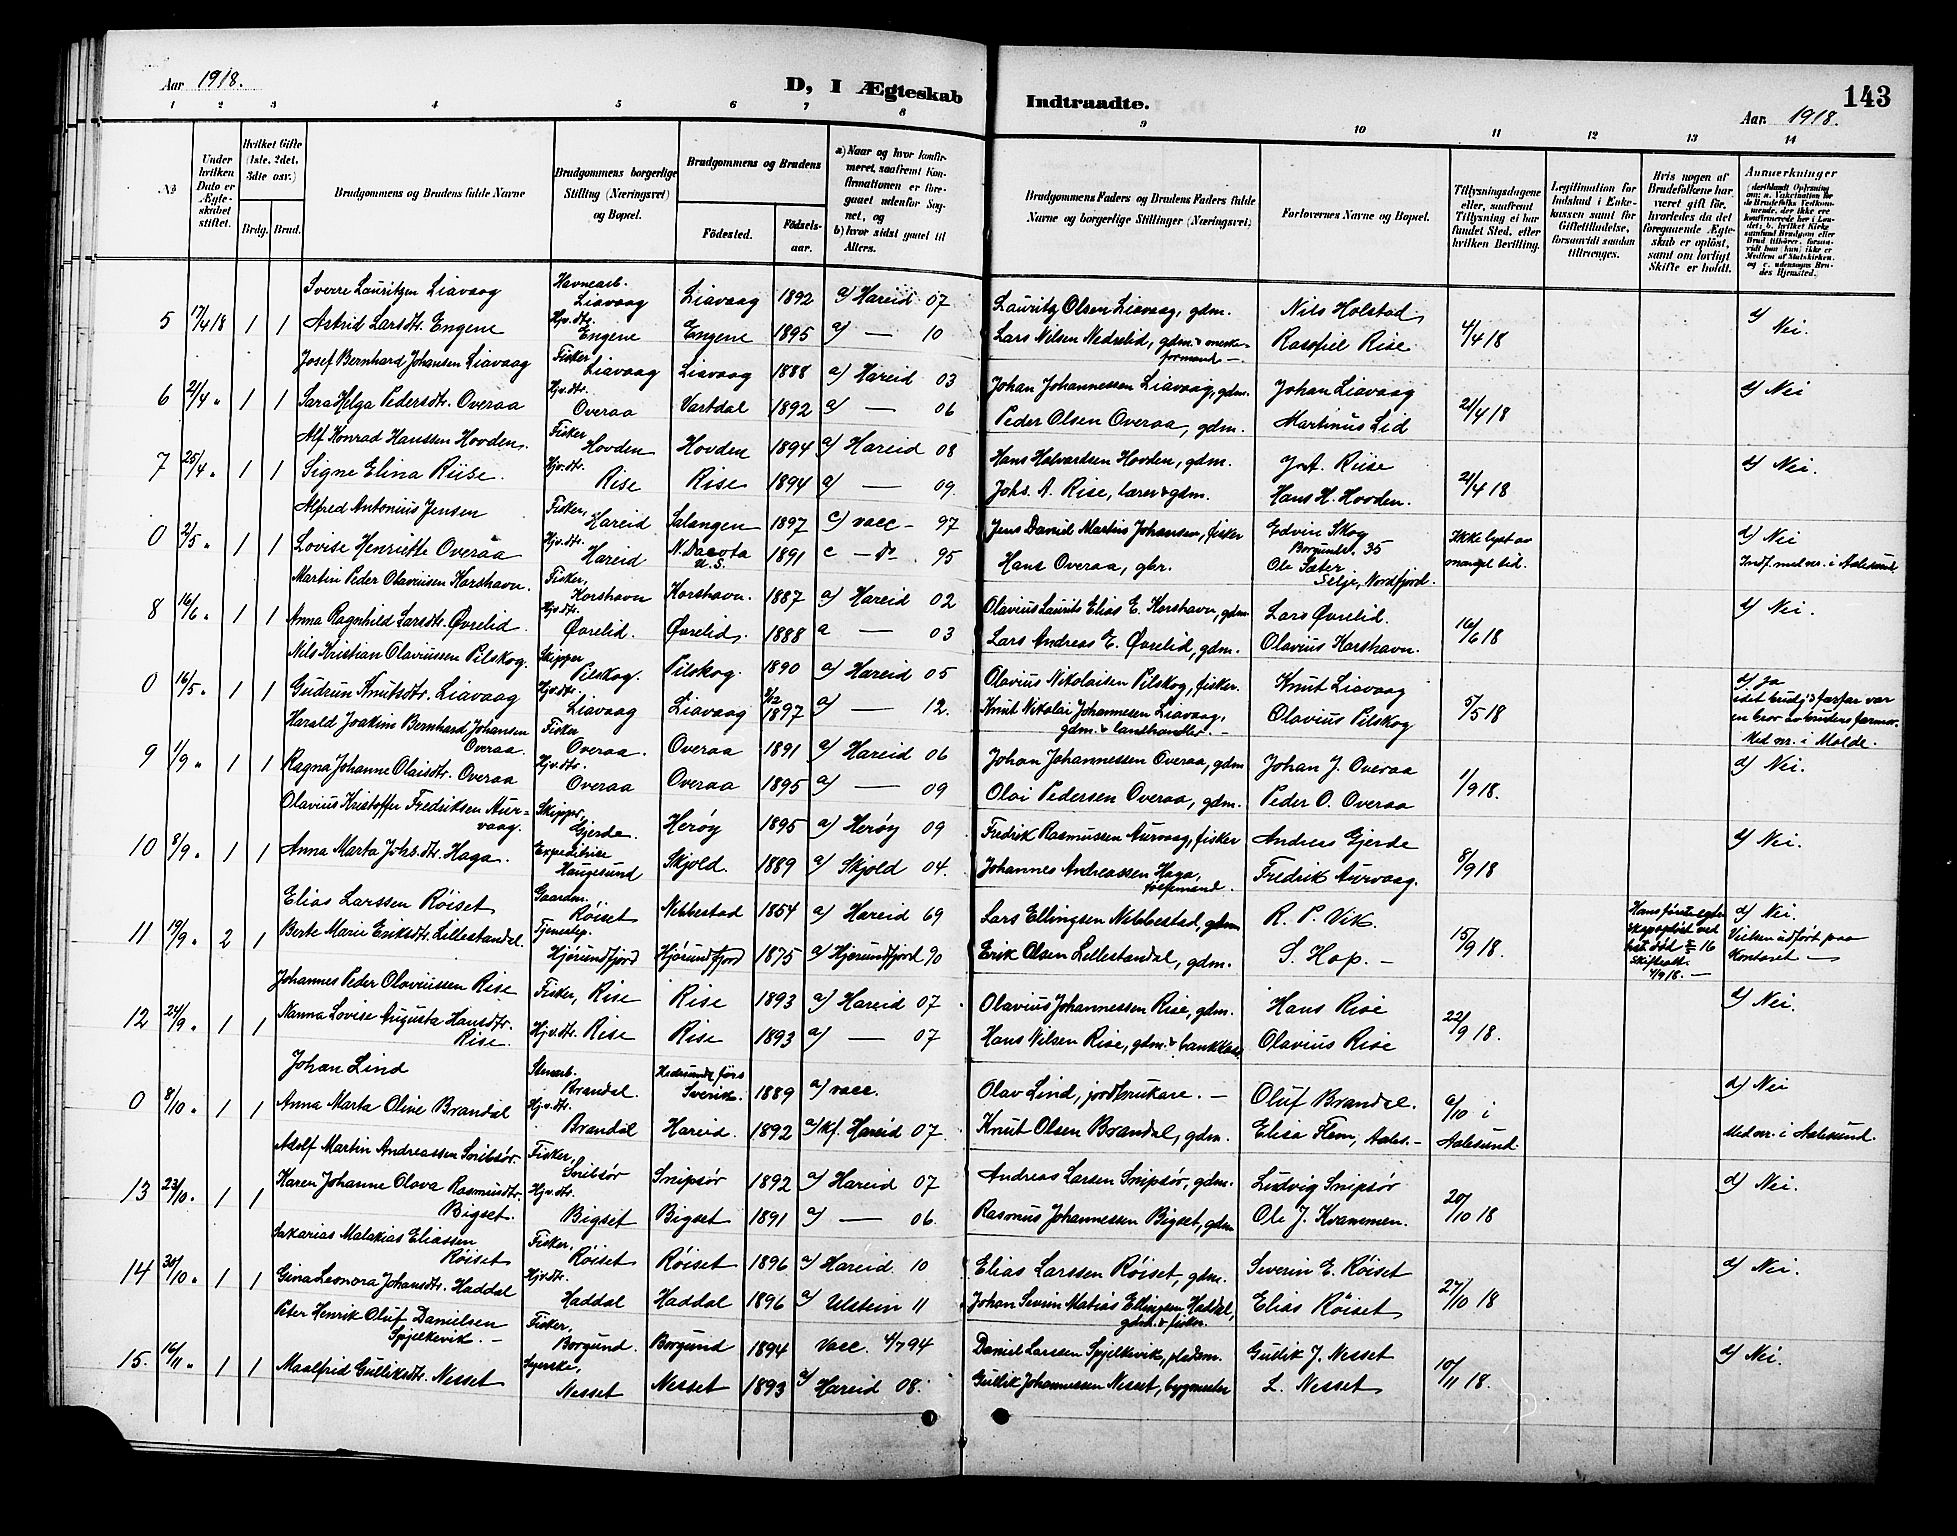 Aar 1918.
D, I Ægteskab Indtraadte.
143
Aar 1918.
1 2 3 4 5 6 7 8 9 10 11 12 13 14
No
Under hvilken Dato er Ægteskabet stiftet.
Hvilket Gifte (1ste, 2det, 3dte osv.)
Brdg. Brud.
Brudgommens og Brudens fulde Navne
Brudgommens borgerlige Stilling (Næringsvei) og Bopæl.
Brudgommens og Brudens
Fødested.
Fødselsaar.
a) Naar og hvor konfirmeret, saafremt Konfirmationen er foregaaet udenfor Sognet, og
b) hvor sidst gaaet til Alters.
Brudgommens Faders og Brudens Faders fulde Navne og borgerlige Stillinger (Næringsvei)
Forlovernes Navne og Bopæl.
Tillysningsdagene eller, saafremt Tillysning ei har fundet Sted, efter hvilken Bevilling.
Legitimation for Indskud i Enkekassen samt for Giftetilladelse, forsaavidt saadan tiltrænges.
Hvis nogen af Brudefolkene har været gift før, hvorledes da det foregaaende Ægteskab er opløst, samt om lovligt Skifte er holdt.
Anmærkninger
5 17/4 18 1 1
Sverre Lauritzen Liavaag Havnearb. Liavaag Liavaag 1892 a) Hareid 07 Lauritz Olsen Liavaag, gdm. Nils Holstad
Astrid Larsdtr. Engene Hjv.dtr. Engene Engene 1895 a) — 10 Lars Nilsen Nedrelid, gdm. Rasofiel Rise 4/4 18 Nei.
6 21/4 " 1 1
Josef Bernhard Johansen Liavaag Fisker Liavaag Liavaag 1888 a) Hareid 03 Johan Johannessen Liavaag, gdm. Johan Liavaag d) Nei
Sara Helga Pedersdtr. Overaa Hjv.dtr. Overaa Vartdal 1892 a) — 06 Peder Olsen Overaa, gdm. Martinus Lid 21/4 18
7 25/4 " 1 1
Alf Konrad Hanssen Hovden Fisker Hovden Hovden 1894 a) Hareid 08 Hans Halvardsen Hovden, gdm. J. A. Riise d) Nei.
Signe Elina Riise. Hjv.dtr. Rise Rise 1894 a) — 09. Johs. A. Rise, lærer & gdm. Hans H. Hovden. 21/4 18
0 2/5 " 1 1
Alfred Antonius Jensen Fisker, Hareid Salangen 1897 c) vacc – 97 Jens Daniel Martin Johansen, fisker Edvin Skog Borgundv. 35 Ikke lyst av mangel tid. d) Nei
Lovise Henriette Overaa Hjv.dtr. Hareid N. Dacota U.S. 1891 c – do 95 Hans Overaa, gbr. Ole Sæter Selje, Nordfjord. Indf. med nr. i Aalesund.
8 16/6 " 1 1
Martin Peder Olaviusen Korshavn. Fisker, Korshavn Korshavn. 1887 a) Hareid 02 Olavius Laurits Elias E. Korshavn, gdm. Lars Øvrelid. d) Nei.
Anna Ragnhild Larsdtr. Øvrelid. Hjv.dtr. Øvrelid. Øvrelid. 1888 a — 03 Lars Andreas E. Øvrelid, gdm. Olavius Korshavn. 16/6 18
0 16/5 " 1 1
Nils Kristian Olaviussen Pilskog. Skipper Pilskog. Pilskog. 1890 a) Hareid 05 Olavius Nikolaisen Pilskog, fisker. Knut Liavaag d) Ja idet brudg's farfar var en bror av brudens farmor. Med nr. i Molde.
Gudrun Knutsdtr. Liavaag Hjv.dtr. Liavaag Liavaag 1897 a) — 12. Knut Nikolai Johannesen Liavaag, gdm. & landhandler – Olavius Pilskog 5/5 18
9 1/9 " 1 1
Harald Joakim Bernhard Johansen Overaa. Fisker Overaa. Overaa 1891 a) Hareid 06 Johan Johannessen Overaa, gdm Johan J. Overaa d) Nei.
Ragna Johanne Olaisdtr. Overaa Hjv.dtr. Overaa Overaa 1895 a) — 09 Olai Pedersen Overaa, gdm. Peder O. Overaa 1/9 18.
10 8/9 " 1 1
Olavius Kristoffer Fredriksen Aurvaag. Skipper, Gjerde. Herøy 1895 a) Herøy 09 Fredrik Rasmussen Aurvaag, fisker Andreas Gjerde d) Nei.
Anna Marta Johs.dtr. Haga. Expeditrise Haugesund Skjold. 1889 a) Skjold 04. Johannes Andreassen Haga, Fredrik Aurvaag. 8/9 18
11 19/9 " 2 1
Elias Larssen Röiset Gaardm. Röiset Nebbestad 1854 a) Hareid 69 Lars Ellingsen Nebbestad, gdm R. P. Vik. d) Nei. Vielsen udført paa kontoret —
Berte Marie Eriksdtr. Lillestandal. Tjenestep. Hjörundfjord Hjörundfjord 1875 a) Hjörundfjord 90 Erik Olsen Lillestandal, gdm. S. Hop. – 15/9 18.
12 24/9 " 1 1
Johannes Peder Olaviussen Rise Fisker, Rise Rise 1893 a) Hareid 07 Olavius Johannessen Rise, gdm. Hans Rise d) Nei.
Nanna Lovise Augusta Hansdtr. Rise. Hjv.dtr. Rise Rise 1893 a) — 07 Hans Nilsen Rise, gdm. & bankkas. Olavius Rise 22/9 18.
0 8/10 " 1 1
Johan Lind Stenarb. Brandal 1889 a) vacc. Olav Lind, jordbrukare. – Oluf Brandal. d) Nei
Anna Marta Oline Brandal Hjv.dtr. Brandal Hareid. 1892 a) kf. Hareid 07. Knut Olsen Brandal, gdm. Elisa Flem, Aales. – 6/10 i Aalesund Med nr. i Aalesund.
13 23/10 " 1 1
Adolf Martin Andreassen Snibsör. Fisker, Snibsör Snipsör 1892 a) Hareid 07 Andreas Larsen Snipsör, gdm. Ludvig Snipsör d) Nei.
Karen Johanne Olava Rasmusdtr. Bigset. Hjv.dtr. Bigset Bigset 1891 a) — 06. Rasmus Johannessen Bigset, gdm Ole J. Kvammen. 20/10 18
14 30/10 " 1 1
Sakarias Malakias Eliassen Röiset Fisker, Röiset Röiset 1896 a) Hareid 10 Elias Larssen Röiset, gdm. Severin E. Röiset d) Nei.
Gina Leonora Johansdtr. Haddal Hjv.dtr. Haddal Haddal 1896 a) Ulstein 11 Johan Severin Matias Ellingsen Haddal, gdm. & fisker. Elias Röiset 27/10 18
15. 16/11 " 1 1
Peter Henrik Oluf Danielsen Spjelkevik. – Fisker, Borgund. Borgund 1894 Vacc. 4/7 94 Daniel Larssen Spjelkevik, Gullik J. Nesset d) Nei.
Maalfrid Gulliksdtr. Nesset Syerske, Nesset Nesset 1893 a) Hareid 08. Gullik Johannessen Nesset, bygmester L. Nesset 10/11 18.